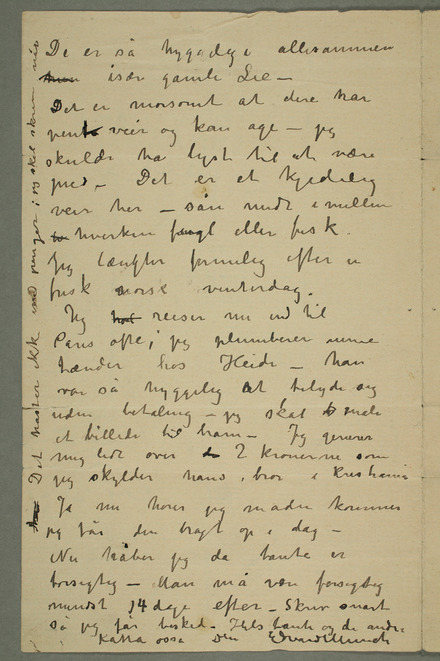 De er så hyggelige allesammen
især gamle Lie –
Det er morsomt at dere har
pent veir og kan age – jeg
skulde ha lyst til at være
med – Det er et kjedelig
veir her – sån midt imellem
hverken fugl eller fisk.
Jeg længter formelig efter en
frisk norsk vinterdag.
Jeg reiser nu ind til
Paris ofte, jeg plumberer mine
tænder hos Heide – han
var så hyggelig at tilbyde sig
uden betaling – jeg skal sende
et billede til ham – Jeg generer
mig lidt over 2 kronerne som
jeg skylder hans bror i Kristiania
Ja nu hører jeg madm kommer
jeg får den bragt op i dag –
Nu håber jeg da tante er
forsigtig – Man må være forsigtig
mindst 14 dage efter – Skriv snart
så jeg får besked. Hils tante og de andre
Din Edvard Munch
Det haster ikke med penger; jeg skal skrive når